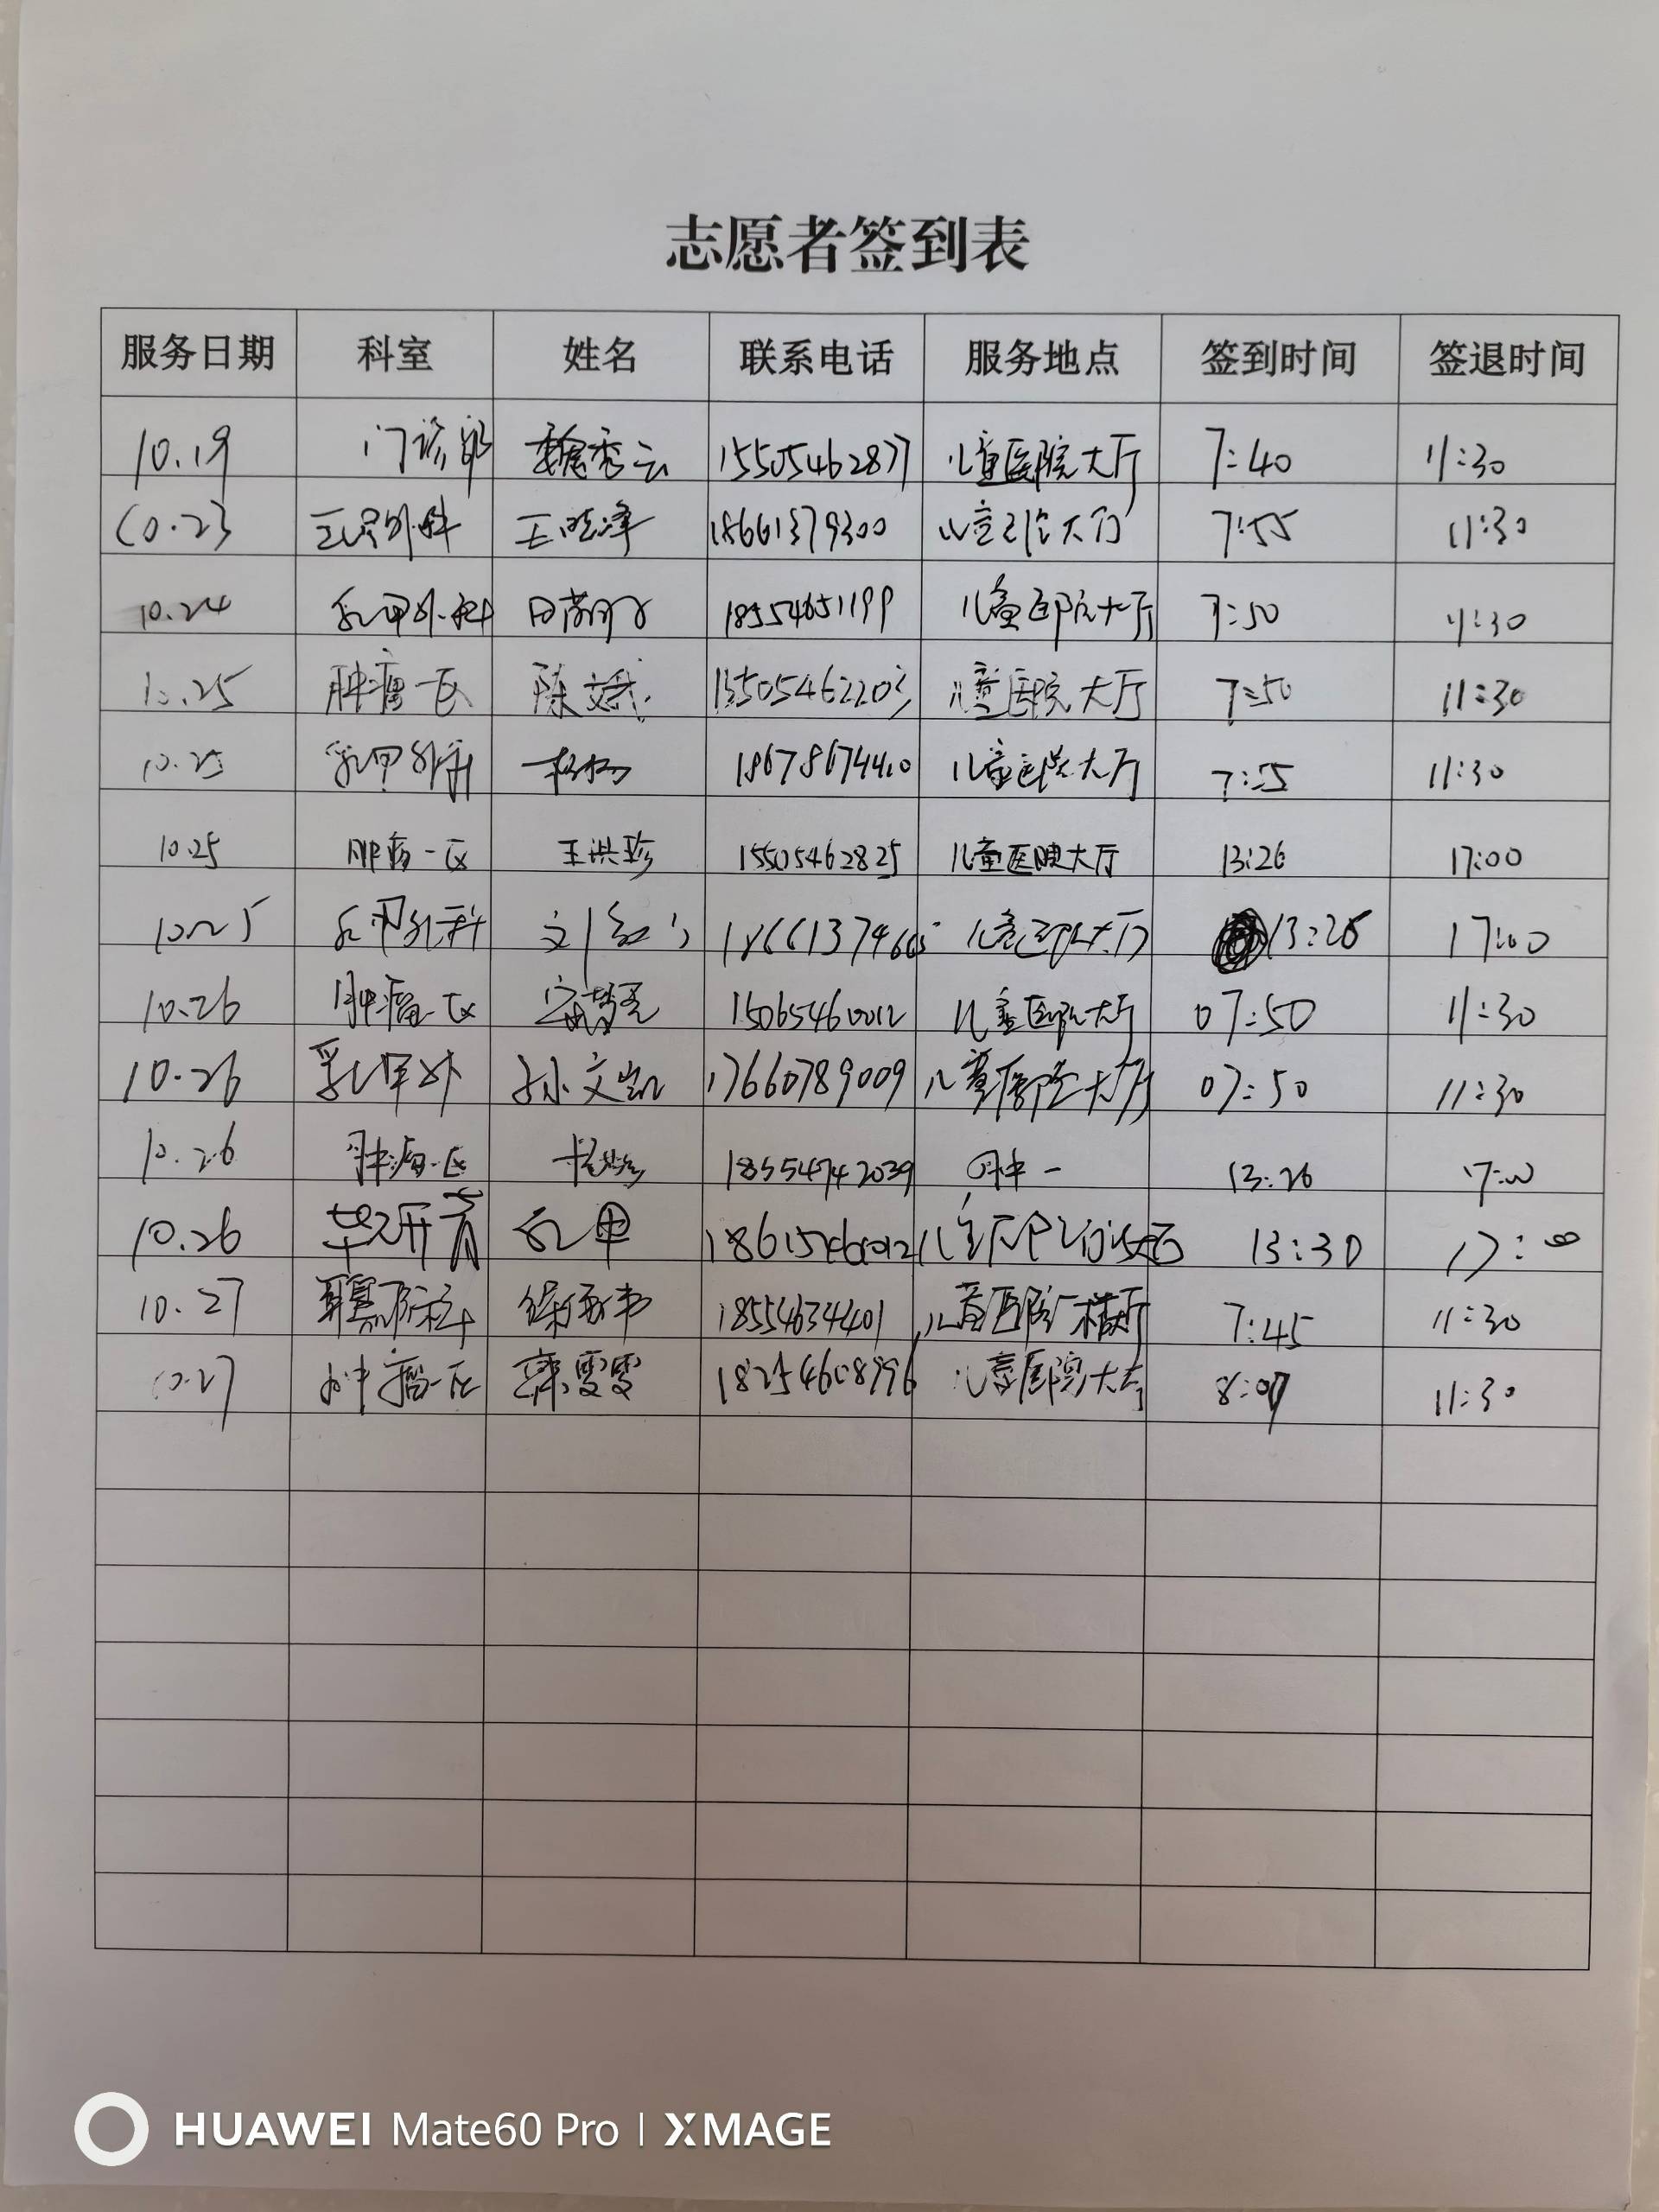 志愿者签到表
服务日期 科室 姓名 联系电话 服务地点 签到时间 签退时间
10.19 门诊部 魏秀云 15505462877 儿童医院大厅 7:40 11:30
10.23 王晓泽 18661379300 7:55 11:30
10.24 乳甲外科 18554651199 儿童医院大厅 7:50 11:30
10.25 肿瘤一区 陈文娥 13505462203 儿童医院大厅 7:50 11:30
10.25 乳甲外科 杨杨 18678674410 儿童医院大厅 7:55 11:30
10.25 肿瘤一区 王洪珍 15505462825 儿童医院大厅 13:26 17:00
10.25 儿童医院大厅 13:26 17:00
10.26 肿瘤一区 15065460012 儿童医院大厅 07:50 11:30
10.26 乳甲外 孙文凯 17660789009 儿童医院大厅 07:50 11:30
10.26 肿瘤一区 18554742039 肿一 13:26 17:00
10.26 乳甲 13:30 17:00
10.27 18554634401 7:45 11:30
10.27 肿瘤一区 雯雯 18254608996 儿童医院大厅 8:07 11:30
HUAWEI Mate60 Pro | XMAGE